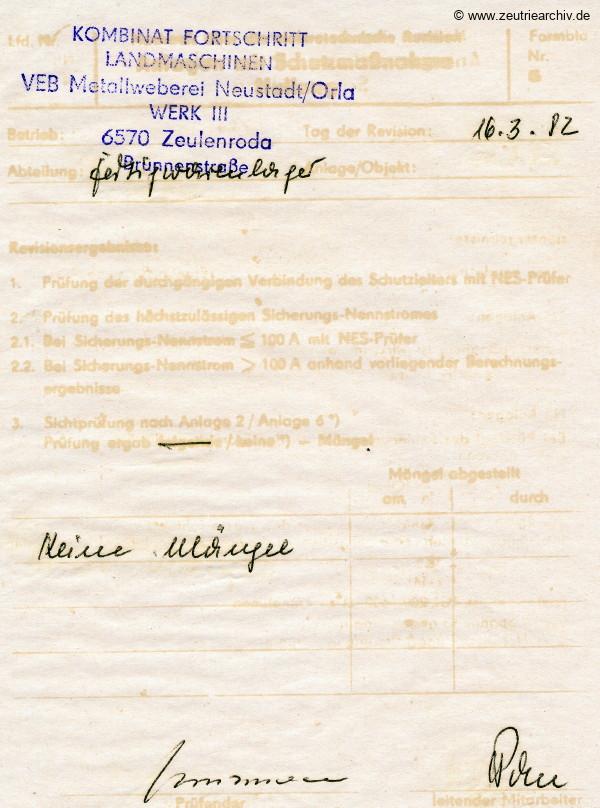 © www.zeutriearchiv.de
KOMBINAT FORTSCHRITT
LANDMASCHINEN
VEB Metallweberei Neustadt/Orla
WERK III
6570 Zeulenroda
Brunnenstraße
Lfd. Nr.
Schutzmaßnahme
Formbla
Nr.
Betrieb:
Tag der Revision: 16.3.82
Abteilung: Fertigwarenlager
Anlage/Objekt:
Revisionsergebnisse:
1. Prüfung der durchgängigen Verbindung des Schutzleiters mit NES-Prüfer
2. Prüfung des höchstzulässigen Sicherungs-Nennstromes
2.1. Bei Sicherungs-Nennstrom ≦ 100 A mit NES-Prüfer
2.2. Bei Sicherungs-Nennstrom > 100 A anhand vorliegender Berechnungs-
ergebnisse
3. Sichtprüfung nach Anlage 2 / Anlage 6 *)
Prüfung ergab / keine *) – Mängel
Mängel abgestellt
am
durch
Keine Mängel
Prüfender
leitender Mitarbeiter